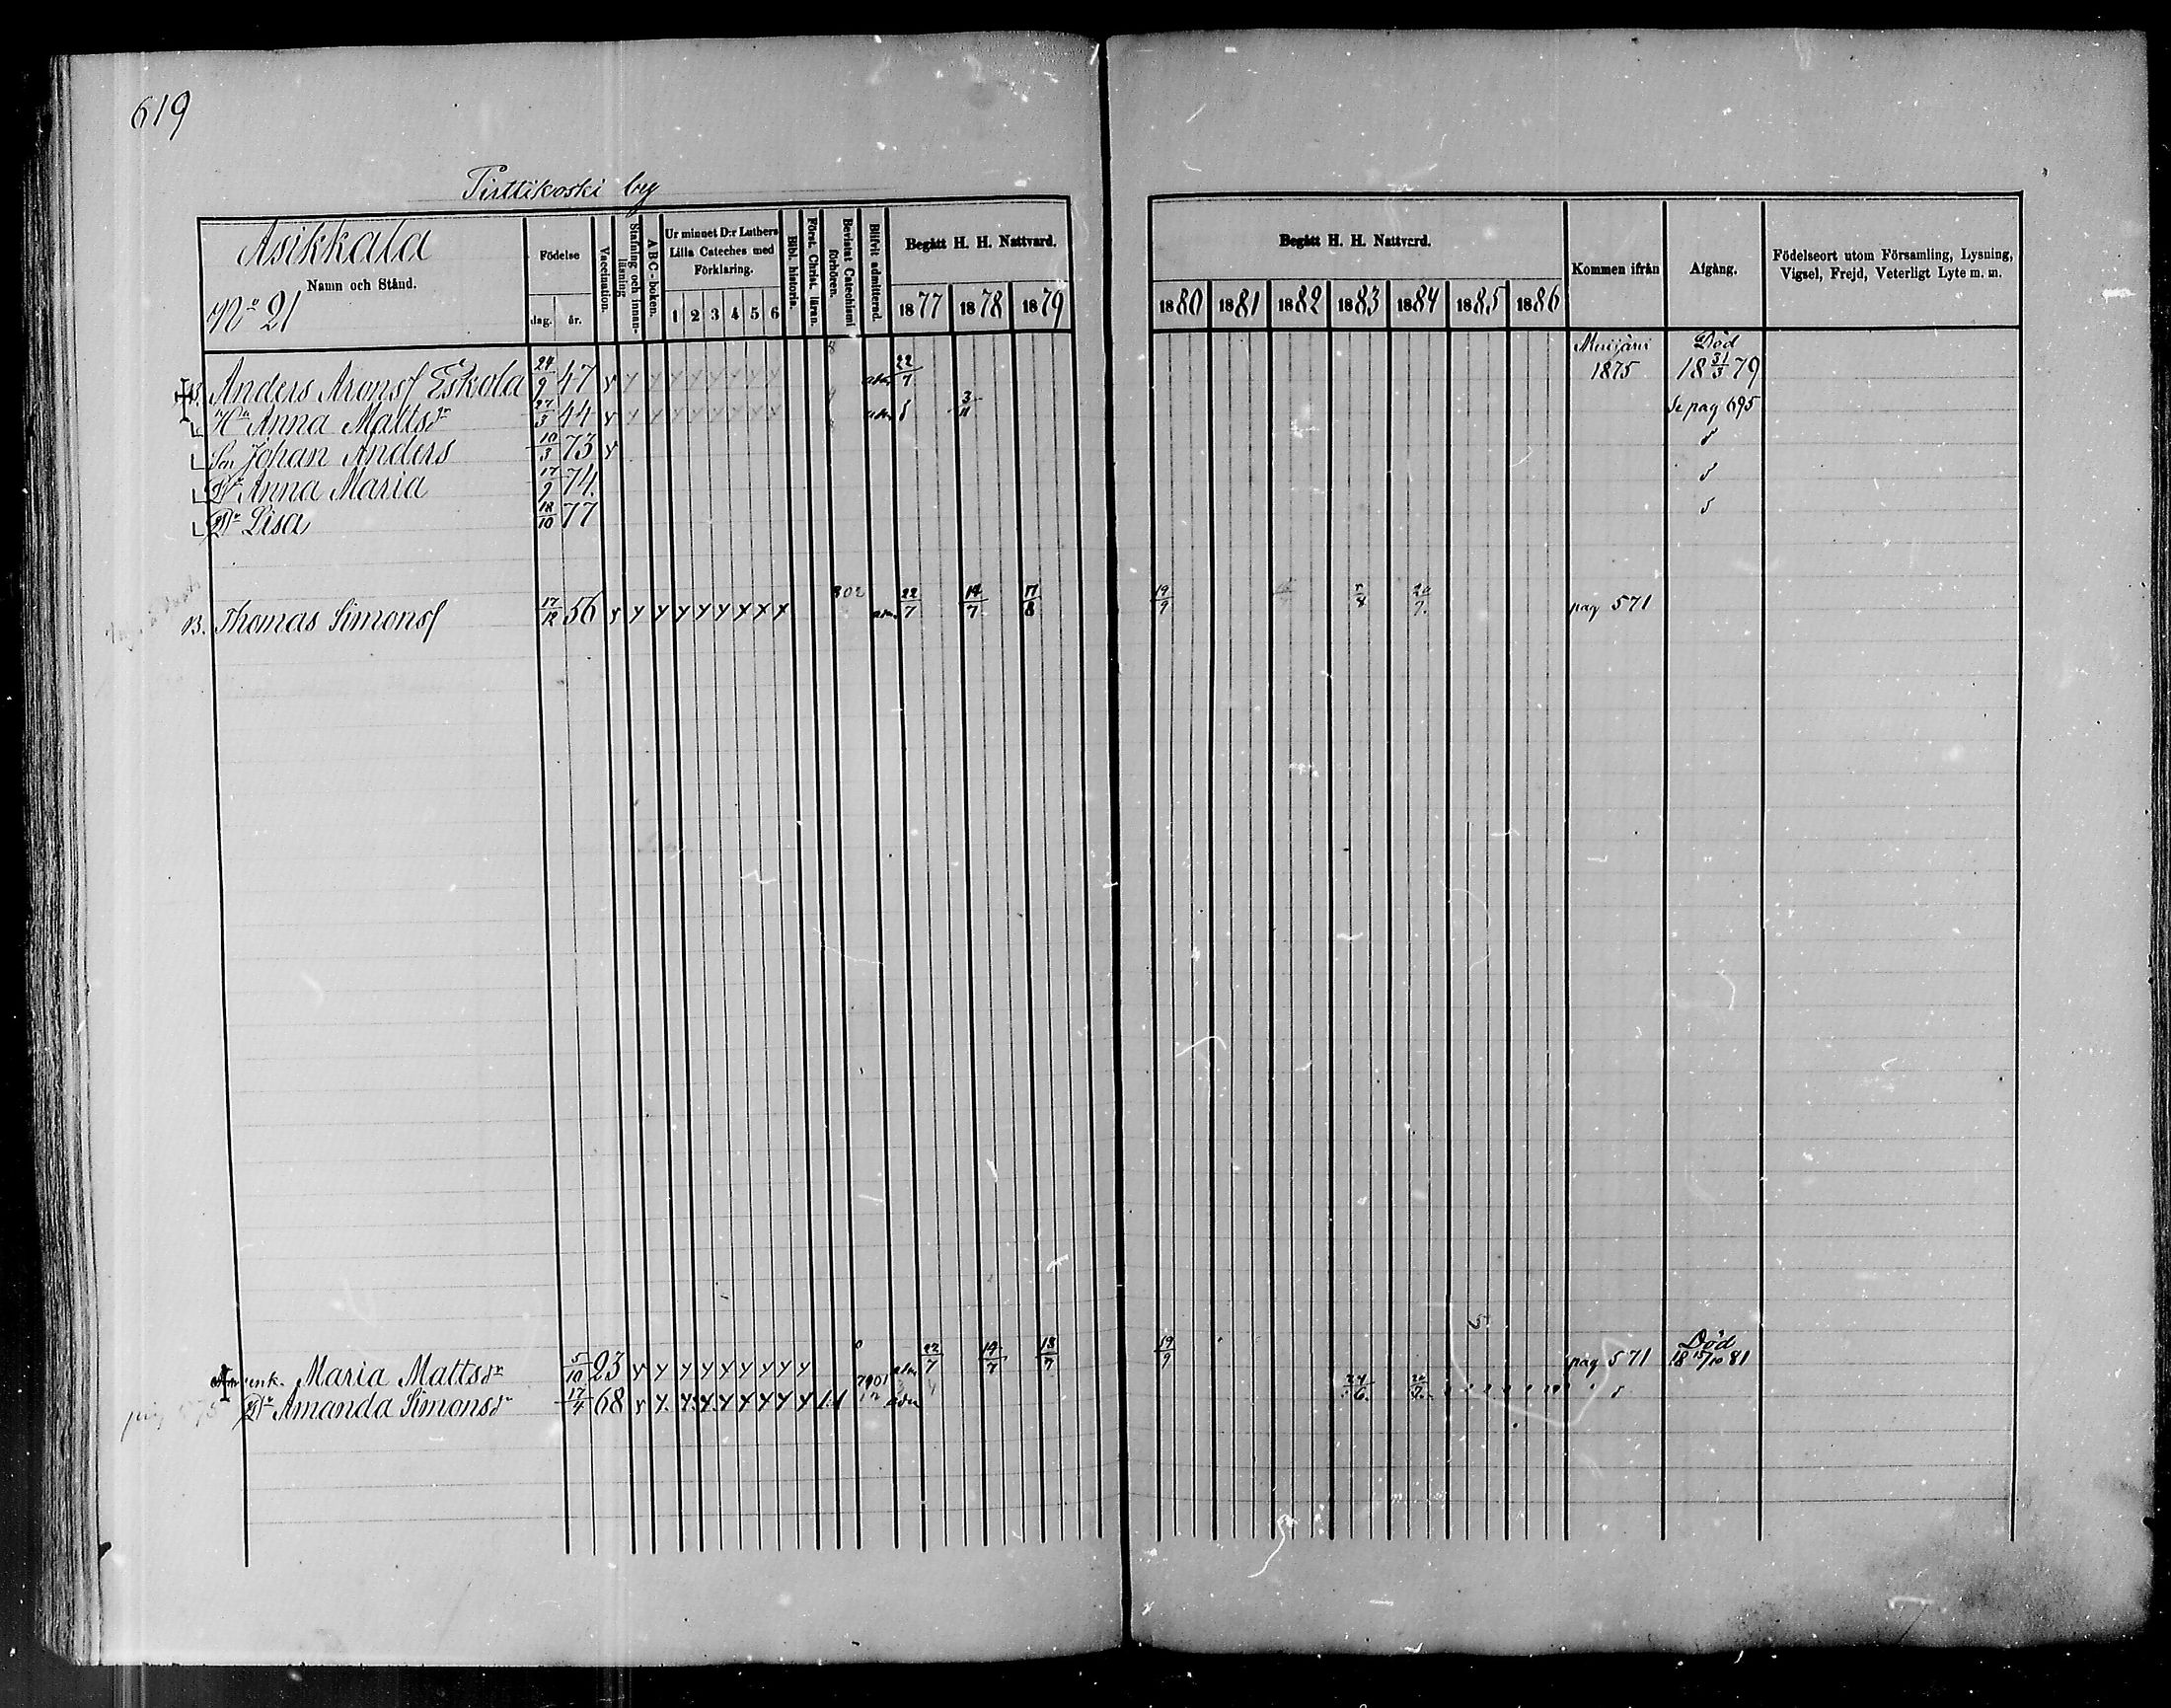 619
Pirttikoski by
Asikkala
Namn och Stånd.
No 21
Födelse
dag. år.
Vaccination.
Stafning och innan-läsning
ABC-boken.
Ur minnet D:r Luthers Lilla Cateches med Förklaring.
1 2 3 4 5 6
Bibl. historia.
Först. Christ. läran.
Bevistat Catechismi förhören.
Blifvit admitterad.
Begått H. H. Nattvard.
1877 1878 1879
Begått H. H. Nattvard.
1880 1881 1882 1883 1884 1885 1886
Kommen ifrån
Afgång.
Födelseort utom Församling, Lysning, Vigsel, Frejd, Veterligt Lyte m. m.
B. Anders Aronsf Eskola 24/9 47 22/7 1875 Död 18 31/3 79
Hu Anna Mattsdr 27/3 44 3/11 Se pag 695
Son Johan Anders 10/3 73
Dr Anna Maria 17/9 74
Dr Lisa 18/10 77
B. Thomas Simonsf 17/12 56 22/7 14/7 17/8 19/9 pag 571
enk. Maria Mattsdr 5/10 23 22/7 14/7 13/7 19/9 pag 571 Död 18 15/10 81
Dr Amanda Simonsdr 17/4 68 24/6